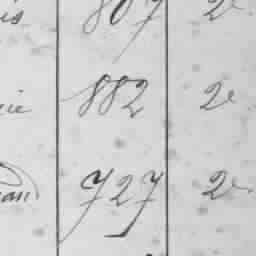 is 807 2e
cie 882 2e
an 727 2e